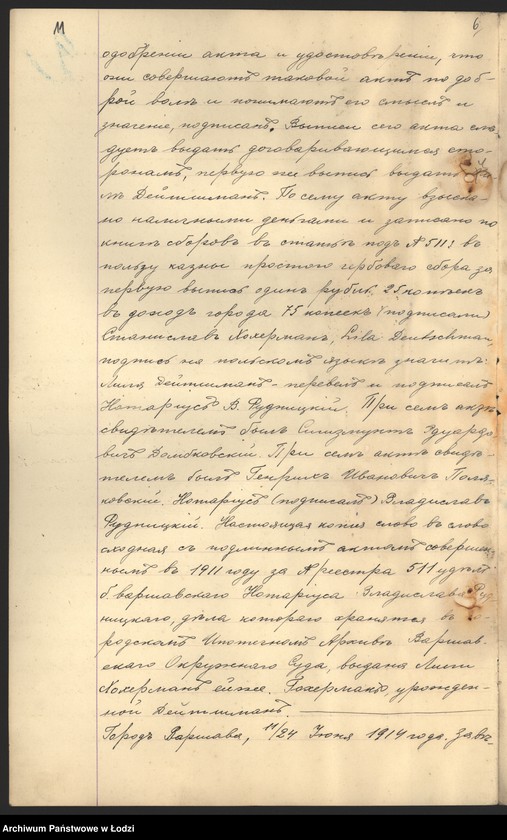 11
6
одобреніи акта и удостовѣреніи, что
они совершаютъ таковой актъ по доб-
рой волѣ и понимаютъ его смыслъ и
значеніе, подписанъ. Выписи сего акта слѣ
дуетъ выдать договаривающимся сто-
ронамъ, первую же выпись выдать
Дейтшманъ. По сему акту взыска-
но наличными деньгами и записано по
книгѣ сборовъ въ статьѣ подъ № 5113 въ
пользу казны простого гербоваго сбора за
первую выпись одинъ рубль 25 копѣекъ
въ доходъ города 75 копеекъ (подписали)
Станиславъ Кохерманъ, Lila Deutschman,
подпись на польскомъ языкѣ значитъ:
Лиля Дейтшманъ - перевелъ и подписалъ
Нотаріусъ В. Рудницкій. При семъ актѣ
свидѣтелемъ былъ Сигизмундъ Эдуардо
вичъ Домбковскій. При семъ актѣ свидѣ-
телемъ былъ Генрихъ Ивановичъ Поля-
ковскій. Нотаріусъ (подписалъ) Владиславъ
Рудницкій. Настоящая копія слово въ слово
сходная съ подлиннымъ актомъ совершен-
нымъ въ 1911 году за № реестра 511 у
б. варшавскаго Нотаріуса Владислава Руд
ницкаго, дѣла котораго хранятся въ го-
родскомъ Ипотечномъ Архивѣ Варшав-
скаго Окружнаго Суда, выдана Лили
Кохерманъ ей же Гохерманъ, урожден-
ной Дейтшманъ.
Городъ Варшава, 11/24 Іюня 1914 года. Завѣ-
Archiwum Państwowe w Łodzi